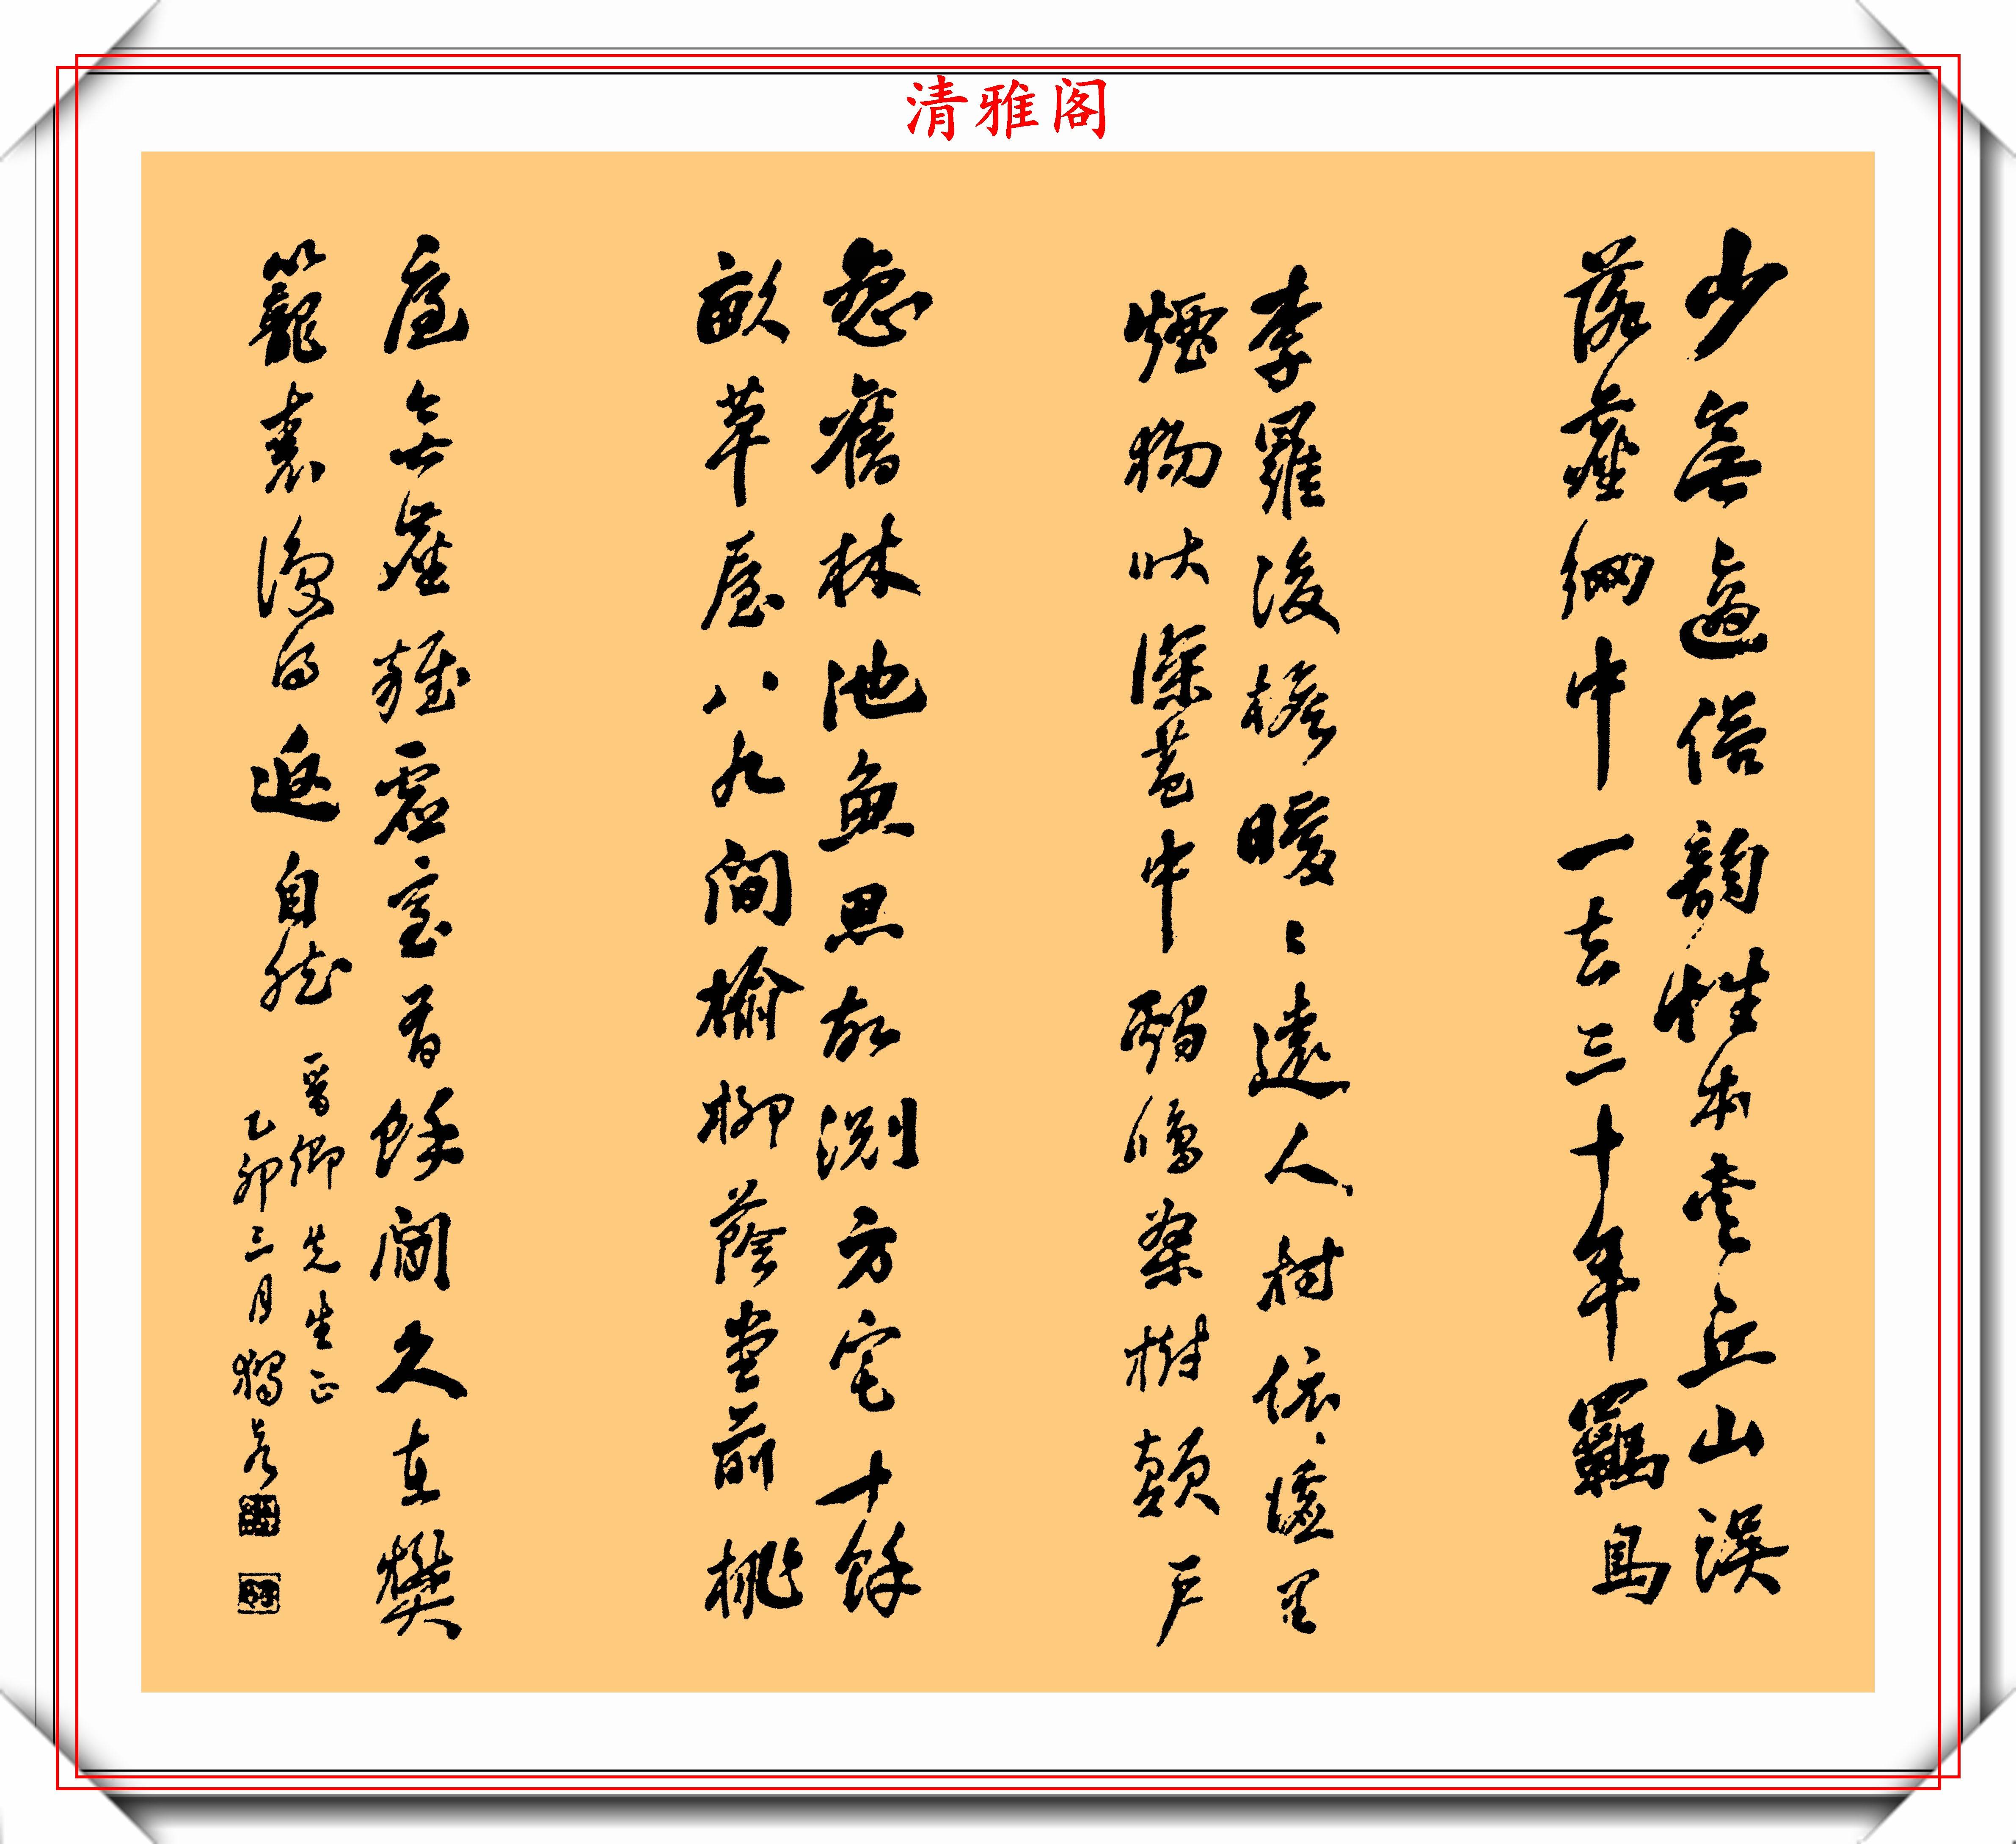 清雅阁
少無適俗韻性本愛丘山誤
落塵網中一去三十年羈鳥
李羅後檐曖〻遠人村依〻墟里
煙狗吠深巷中鷄鳴桑樹顛戶
戀舊林池魚思故淵方宅十餘
畝草屋八九間榆柳蔭堂前桃
庭無塵雜虛室有餘閒久在樊
籠裏復得返自然
晉卿先生正
乙卯三月獨秀